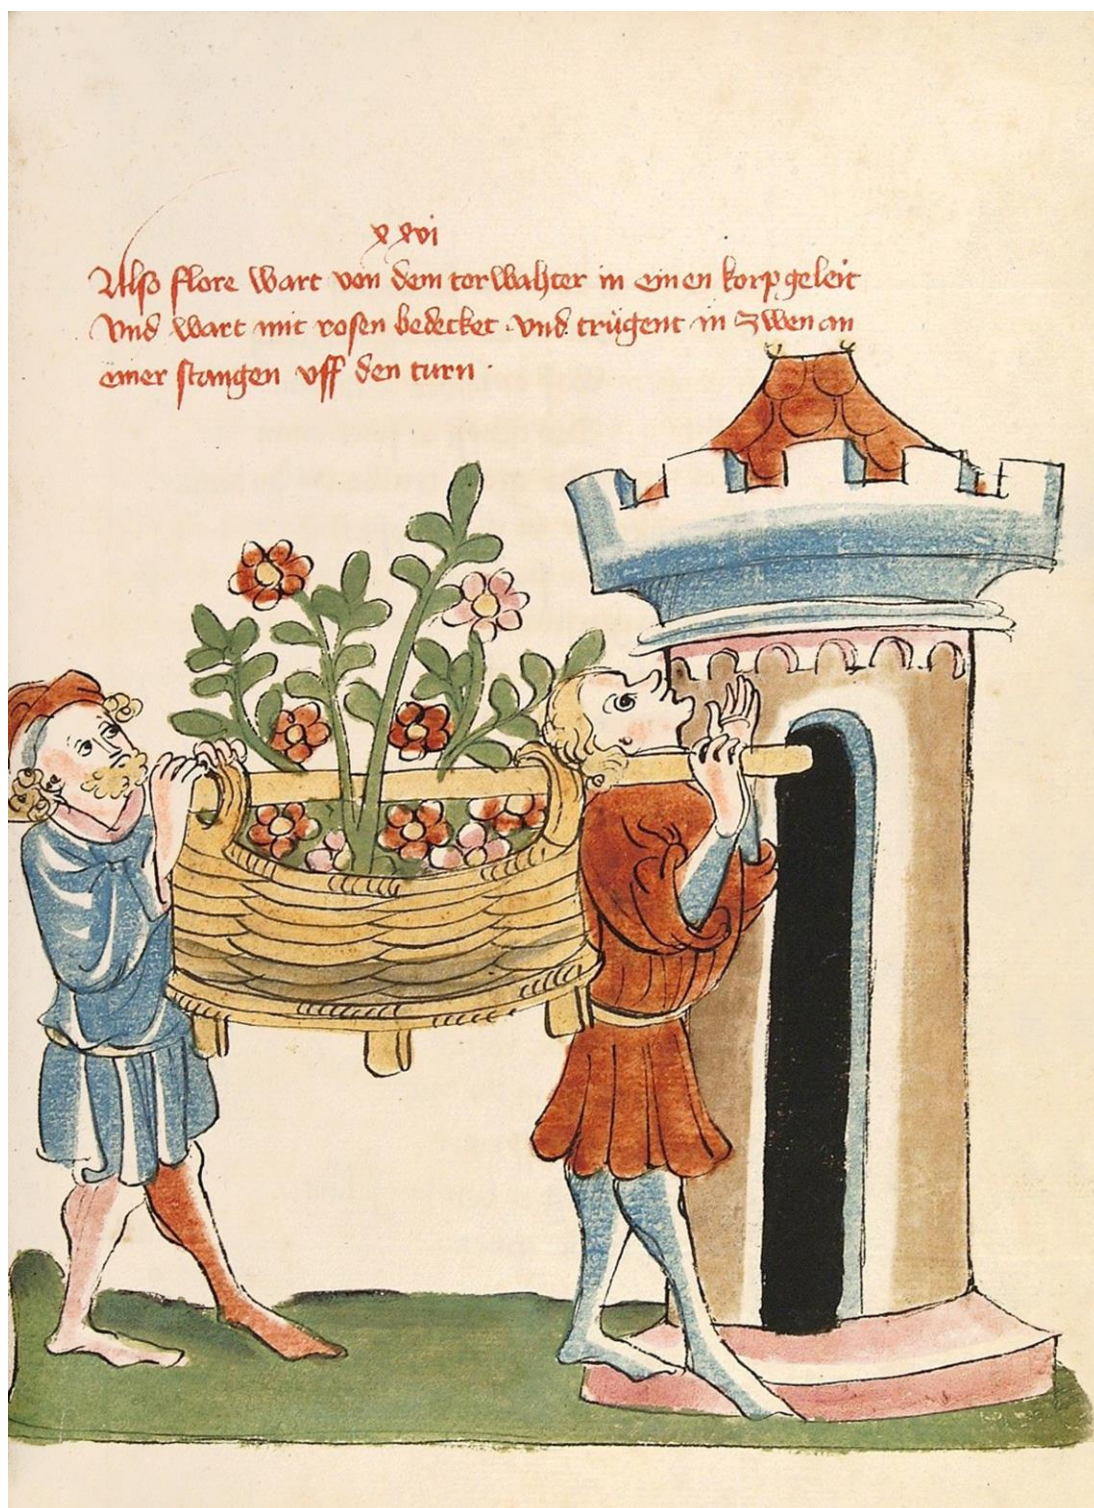 xxvi
Also flore wart von dem torwahter in einen korp geleit
Vnd wart mit rosen bedecket ·vnd trůgent in zwen an
einer stangen vff den turn ·